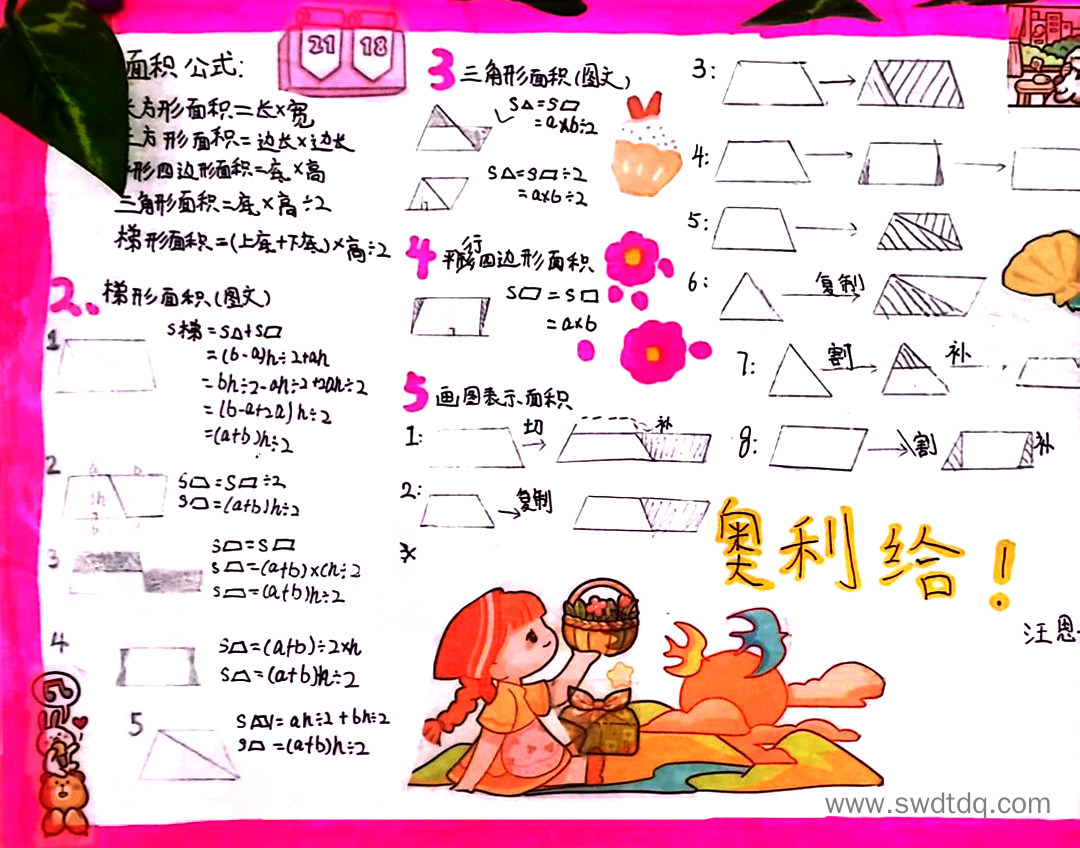 面积公式:
长方形面积=长×宽
正方形面积=边长×边长
形四边形面积=底×高
三角形面积=底×高÷2
梯形面积=(上底+下底)×高÷2
21 18
2、梯形面积(图文)
1
S梯=S△+S▱
=(b-a)h÷2+ah
=bh÷2-ah÷2+2ah÷2
=(b-a+2a)h÷2
=(a+b)h÷2
2
a b
h
a
b
S⏢=S▱÷2
S⏢=(a+b)h÷2
3
S⏢=S▱
S⏢=(a+b)×(h÷2
S⏢=(a+b)h÷2
4
S⏢=(a+b)÷2×h
S⏢=(a+b)h÷2
5
S=ah÷2+bh÷2
S⏢=(a+b)h÷2
3 三角形面积(图文)
S△=S▱
=a×b÷2
S△=S▱÷2
=a×b÷2
4 平行四边形面积
S▱=S▭
=a×b
5 画图表示面积
1: 切 补
2: 复制
3:
4:
5:
6: 复制
7: 割 补
8: 割 补
奥利给!
汪恩
www.swdtdq.com